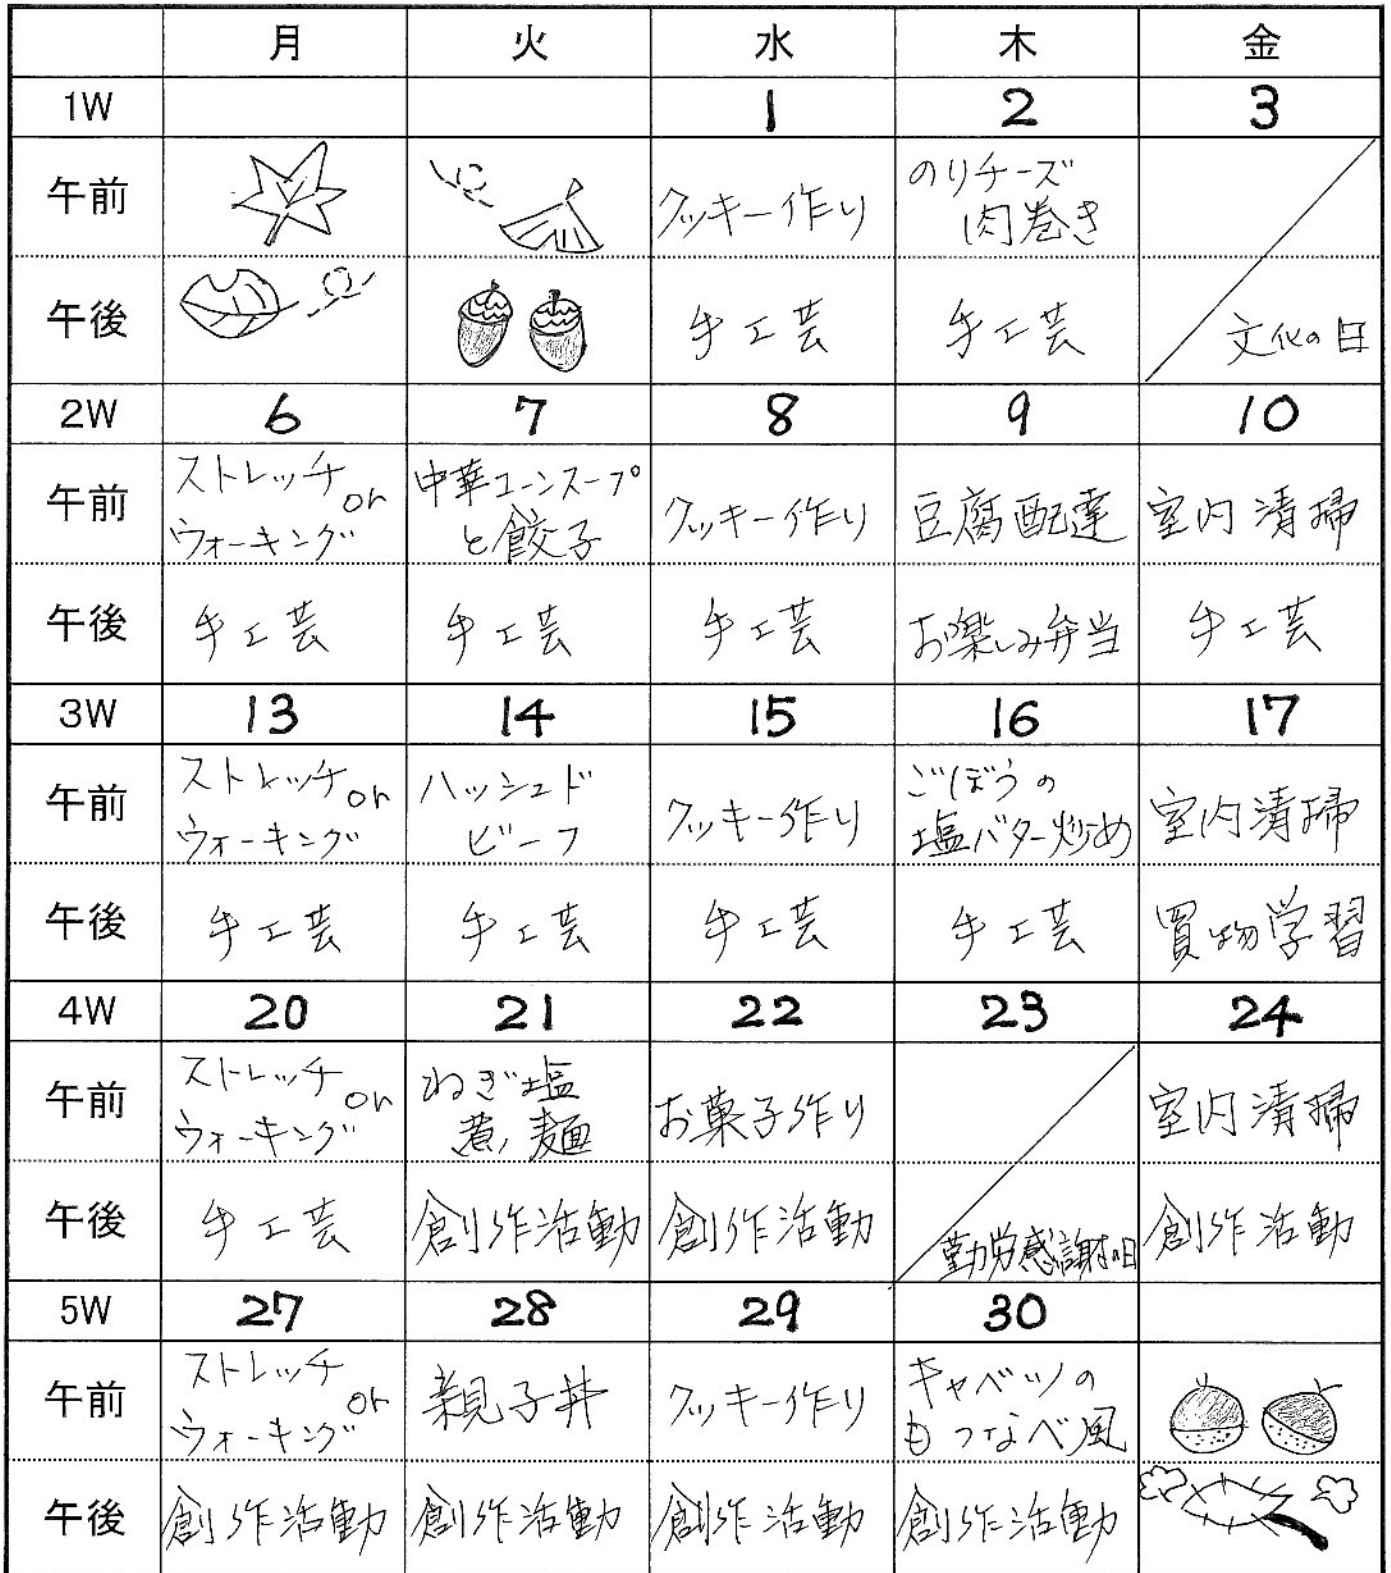 月 火 水 木 金
1W 1 2 3
午前 クッキー作り のりチーズ
肉巻き
午後 手工芸 手工芸 文化の日
2W 6 7 8 9 10
午前 ストレッチor
ウォーキング 中華コーンスープ
と餃子 クッキー作り 豆腐配達 室内清掃
午後 手工芸 手工芸 手工芸 お楽しみ弁当 手工芸
3W 13 14 15 16 17
午前 ストレッチor
ウォーキング ハッシュド
ビーフ クッキー作り ごぼうの
塩バター炒め 室内清掃
午後 手工芸 手工芸 手工芸 手工芸 買物学習
4W 20 21 22 23 24
午前 ストレッチor
ウォーキング ねぎ塩
煮麺 お菓子作り 室内清掃
午後 手工芸 創作活動 創作活動 勤労感謝の日 創作活動
5W 27 28 29 30
午前 ストレッチor
ウォーキング 親子丼 クッキー作り キャベツの
もつなべ風
午後 創作活動 創作活動 創作活動 創作活動